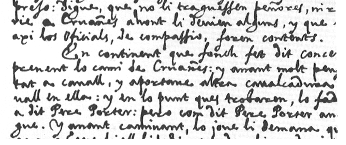 preso: digue, que no li traguessen peñores, mr-
die a Cruañes anont li devien alguns, y que
axi los Oficials, de compassio, foren contents.
En continent que fonch fet dit conce
prenent lo cami de Cruañes; y anant molt pen
tat a cavall, y aportant altra cavalcadura
vall en ella: y en lo punt ques trobaren, lo
a dit Pere Porter: pero com dit Pere Porter an
gue. Y anant caminant, lo jove li demana, qu